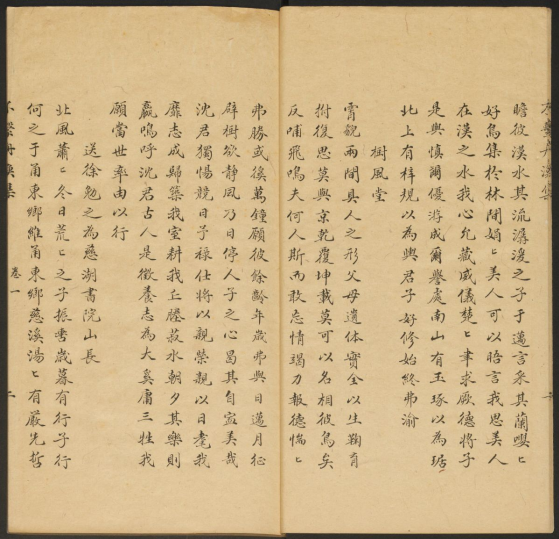 瞻彼漢水其流潺湲之子于邁言采其蘭嚶〻
好鳥集於林間娟〻美人可以晤言我思美人
在漢之水我心允藏威儀楚〻聿求厥德將子
是與慎爾優游成爾譽處南山有玉琢以為琚
北上有梓規以為輿君子好修始終弗渝
樹風堂
霄貌兩間具人之形父母遺体實全以生鞠育
拊復思莫與京乾覆坤載莫可以名相彼鳥矣
反哺飛鳴夫何人斯而敢忘情竭力報德惴〻
弗勝或徯萬鐘願彼餘齡年歲弗與日邁月征
辟樹欲静風乃日停人子之心曷其自寍美哉
沈君獨惕競日予祿仕將以親榮親以日耄我
靡志成歸築我室耕我丘隴菽水朝夕其樂則
嬴嗚呼沈君古人是徵養志為大奚庸三牲我
願當世率由以行
送徐勉之為慈湖書院山長
北風蕭〻冬日荒〻之子振秀歲暮有行子行
何之于甬東鄉維甬東鄉慈溪湯〻有嚴先哲
卷一
二